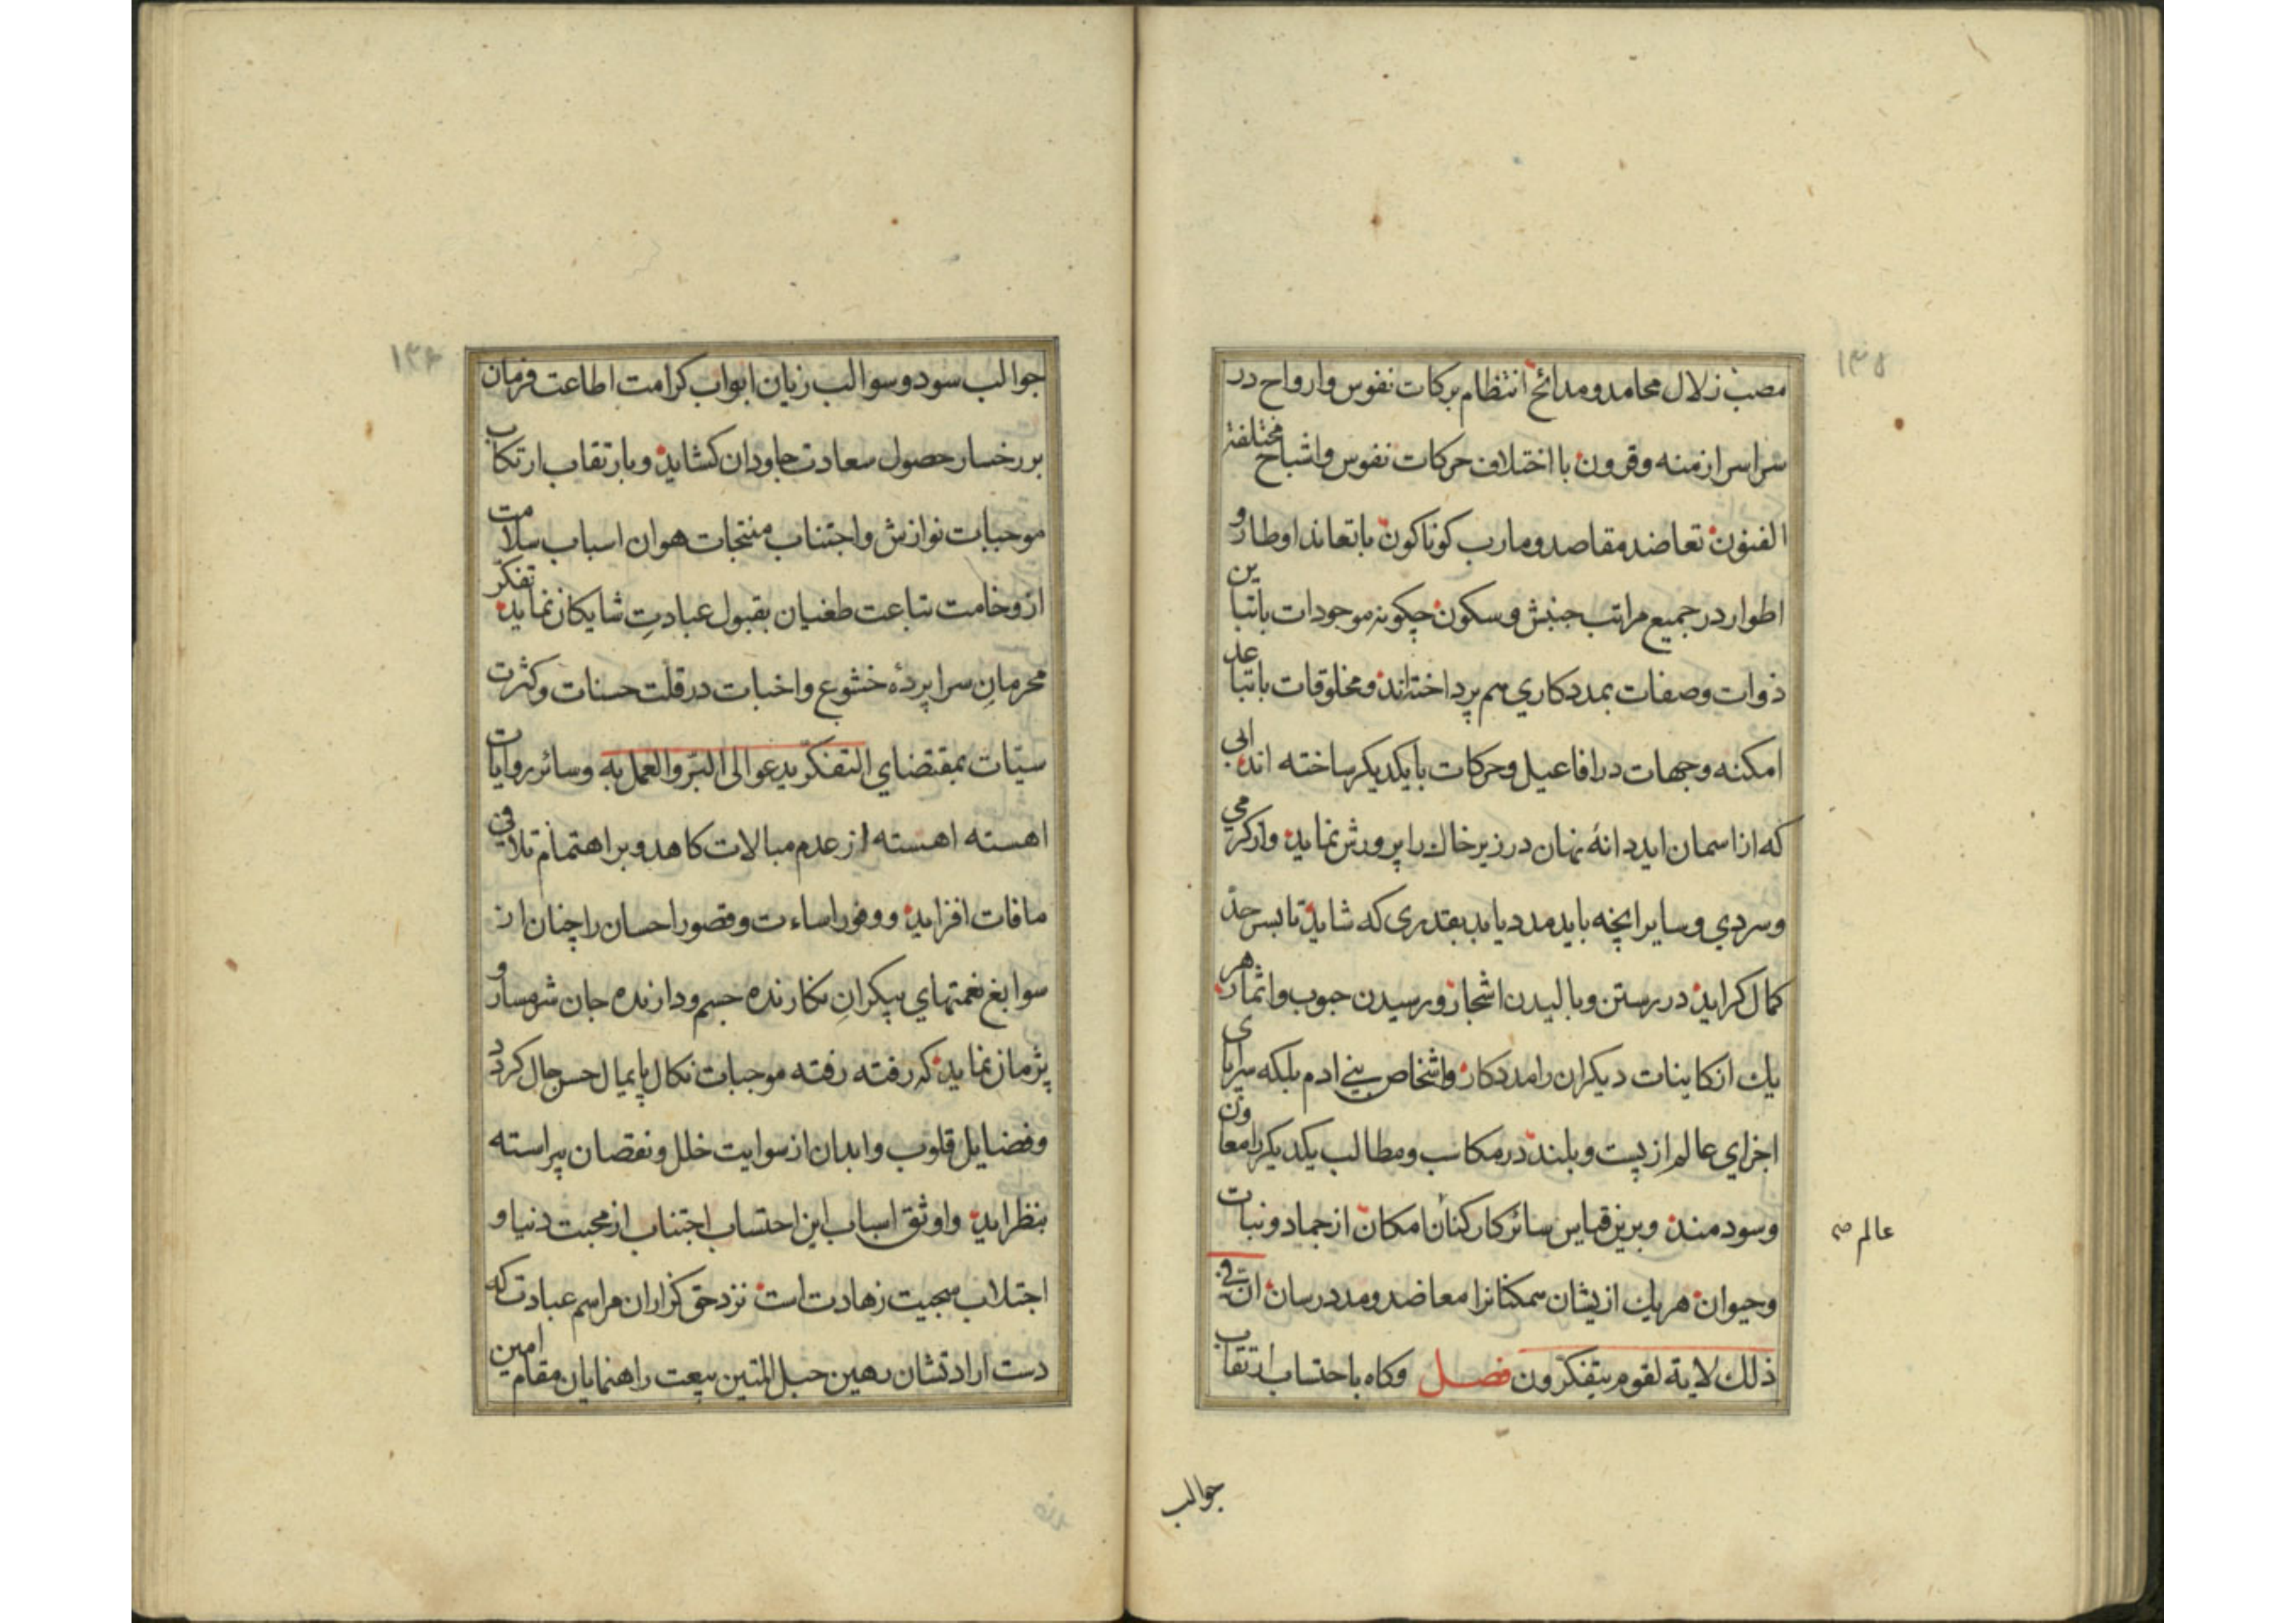 ۱۳۵
مصب زلال محامد و مدائح انتظام برکات نفوس و ارواح در
سراسر ازمنه و قرون با اختلاف حرکات نفوس و اشباح مختلفة
الفنون تعاضد مقاصد و مارب کوناکون با تعاند اوطار و
اطوار در جمیع مراتب جنبش و سکون چکونه موجودات با تباین
ذوات و صفات بمددکاري هم پرداخته‌اند و مخلوقات با تباعد
امکنه و جهات در افاعیل و حرکات با یکدیکر ساخته اند ابی
که از اسمان اید دانهٔ نهان در زیر خاك را پرورش نماید و از کرمي
و سردي و سایر انچه باید مدد یابد بقدری که شاید تا بسر حدّ
کمال کراید در رستن و بالیدن اشجار و رسیدن حبوب و اثمار هر
یك از کاینات دیکران را مددکار و اشخاص بنے ادم بلکه سراپای
اجزاي عالم از پست و بلند در مکاسب و مطالب یکدیکر را معاون
و سودمند و برین قیاس سائر کارکنان امکان از جماد و نبات
عالم صح
و حیوان هر یك از یشان همکنانرا معاضد و مدد رسان ان فے
ذلك لایة لقوم یتفکّرون فصل وکاه باحتساب ارتقاب
جوالب
۱۳۶
جوالب سود و سوالب زیان ابواب کرامت اطاعت فرمان
بر رخسار حصول سعادت جاودان کشاید و بارتقاب ارتکاب
موجبات نوازش و اجتناب منتجات هوان اسباب سلامت
از وخامت تباعت طغیان بقبول عبادتِ شایکان نماید تفکّر
محرمانِ سراپردهٔ خشوع و اخبات در قلت حسنات و کثرت
سیّات بمقتضاي التفکّر یدعوالی البرّ والعمل به و سائر روایات
اهسته اهسته از عدم مبالات کاهد و بر اهتمام تلافی
مافات افزاید و وفور اساءت و قصور احسان را چنان از
سوابغ نعمتهاي بیکرانِ نکارنده جسم و دارنده جان شرمسار و
پژمان نماید که رفته رفته موجبات نکال پایمال حسن حال کردد
و فضایل قلوب و ابدان از سوایت خلل و نقصان پیراسته
بنظر اید و اوثق اسباب این احتساب اجتناب از محبت دنیا و
اجتلاب سجیت زهادت است نزد حق کزاران مراسم عبادت که
دست ارادتشان رهین حبل المتین بیعت راهنمایان مقام امین